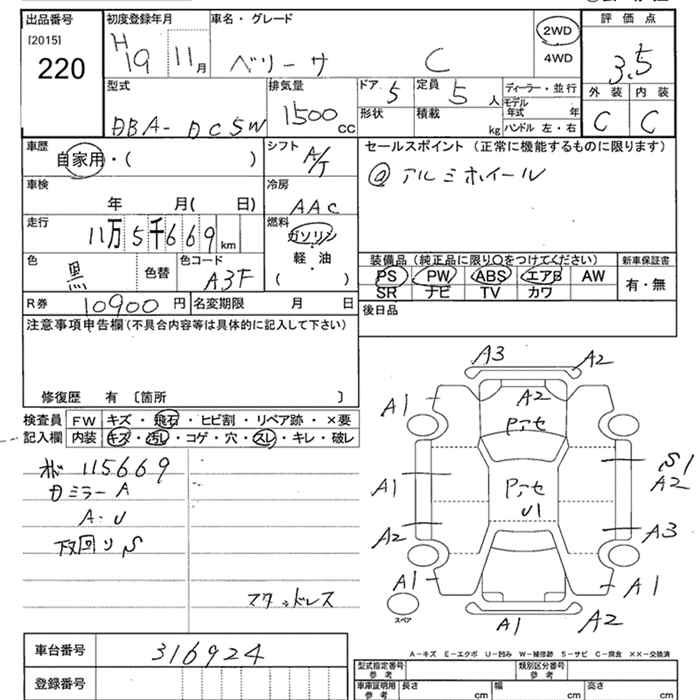 出品番号 初度登録年月 車名・グレード
[2015] 220 H19 11月 ベリーサ C 2WD 4WD
評価点 3.5
外装 内装
C C
型式 DBA-DC5W
排気量 1500 CC
ドア 5 定員 5 人
形状 積載 kg
ディーラー・並行
モデル年式 年
ハンドル 左・右
車歴 自家用・( )
シフト A/T
セールスポイント (正常に機能するものに限ります)
@ アルミホイール
車検 年 月( 日)
冷房 AAC
走行 11万5千669km
燃料 ガソリン・軽油・( )
色 黒 色替 色コード A3F
装備品 (純正品に限り○をつけてください) 新車保証書
PS PW ABS エアB AW 有・無
SR ナビ TV カワ
R券 10900円 名変期限 月 日
後日品
注意事項申告欄 (不具合内容等は具体的に記入して下さい)
修復歴 有 〔箇所 〕
検査員記入欄 FW キズ・飛石・ヒビ割・リペア跡・×要
内装 キズ・汚レ・コゲ・穴・スレ・キレ・破レ
115669
カミラーA
A-U
下回りS
マタッドレス
A3 A2
A1 A2
アセ
S1
A1 アセ A2
U1
A2 A3
A1 A1
スペア A1 A2
A-キズ E-エクボ U-凹み W-補修跡 S-サビ C-腐食 ××-交換済
車台番号 316924
登録番号
型式指定番号 参考 類別区分番号 参考
車庫証明用 参考 長さ cm 幅 cm 高さ cm